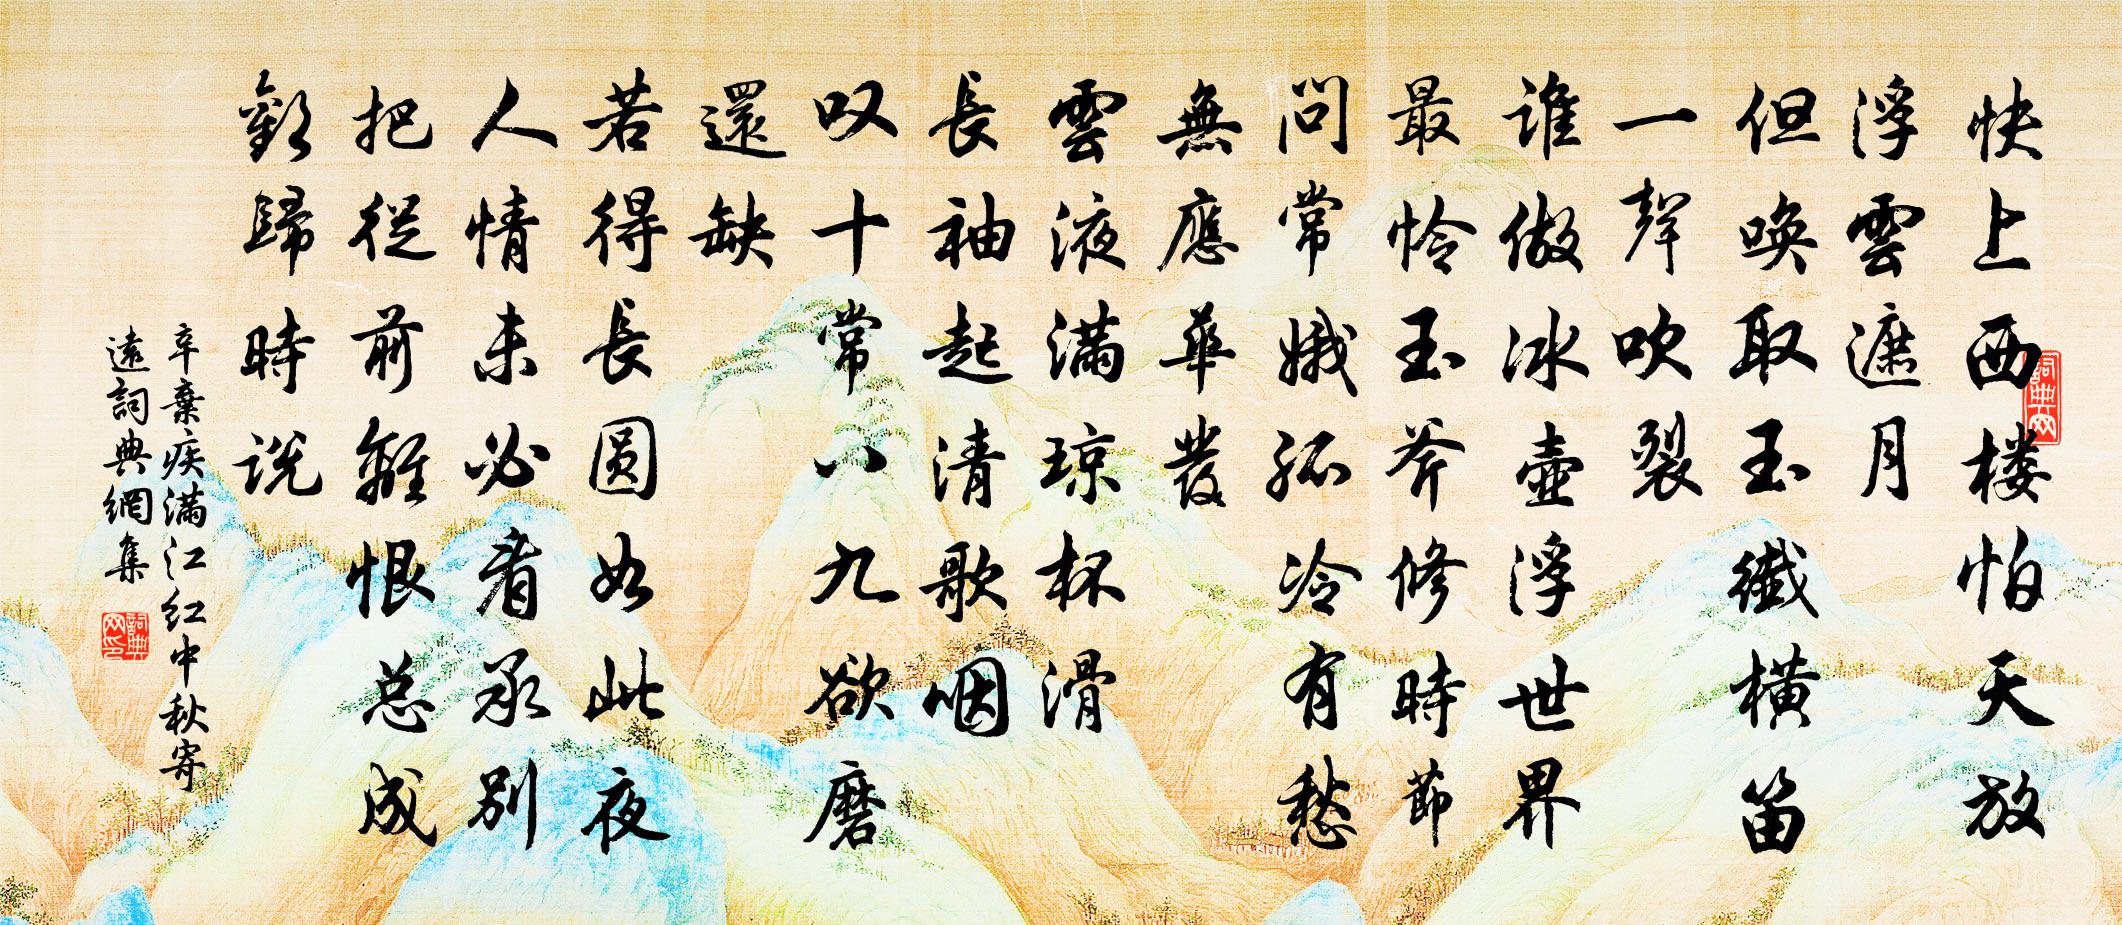 快上西楼怕天放
浮雲遮月
但唤取玉纖橫笛
一聲吹裂
谁做冰壶浮世界
最怜玉斧修時節
问常娥孤冷有愁
無應華發
雲液满琼杯滑
長袖起清歌咽
叹十常八九欲磨
還缺
若得長圆如此夜
人情未必看承别
把從前離恨总成
歡歸時说
辛棄疾满江红中秋寄
遠詞典網集
詞典网
詞典网印